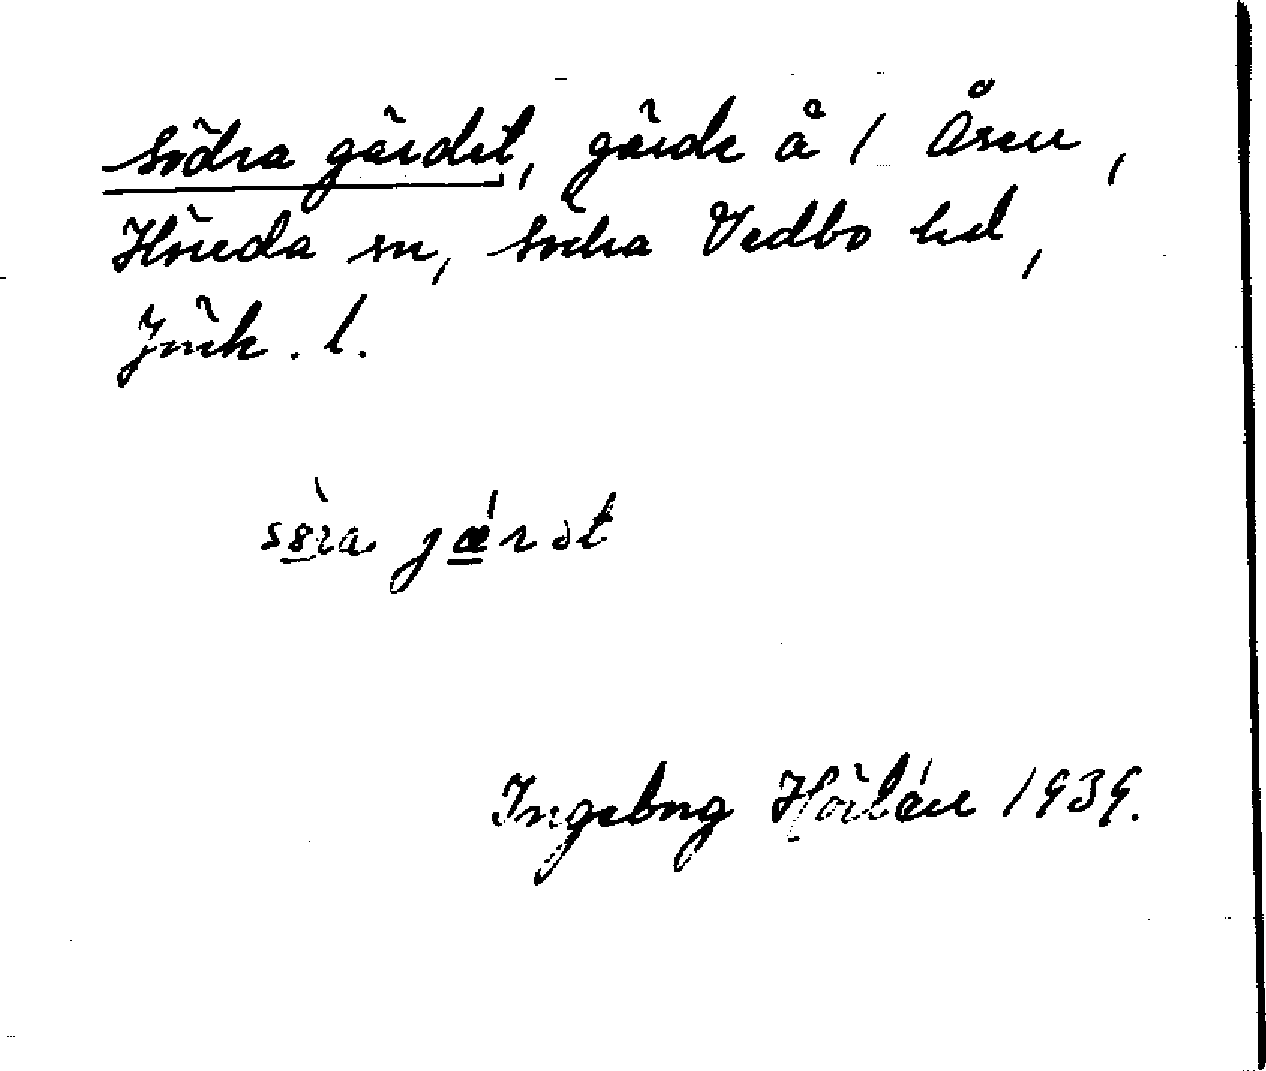 Södra gärdet, gärde å 1 Åsen,
Höreda sn, Södra Vedbo hd,
Jönk. l.
Ingeborg Hörlén 1939.